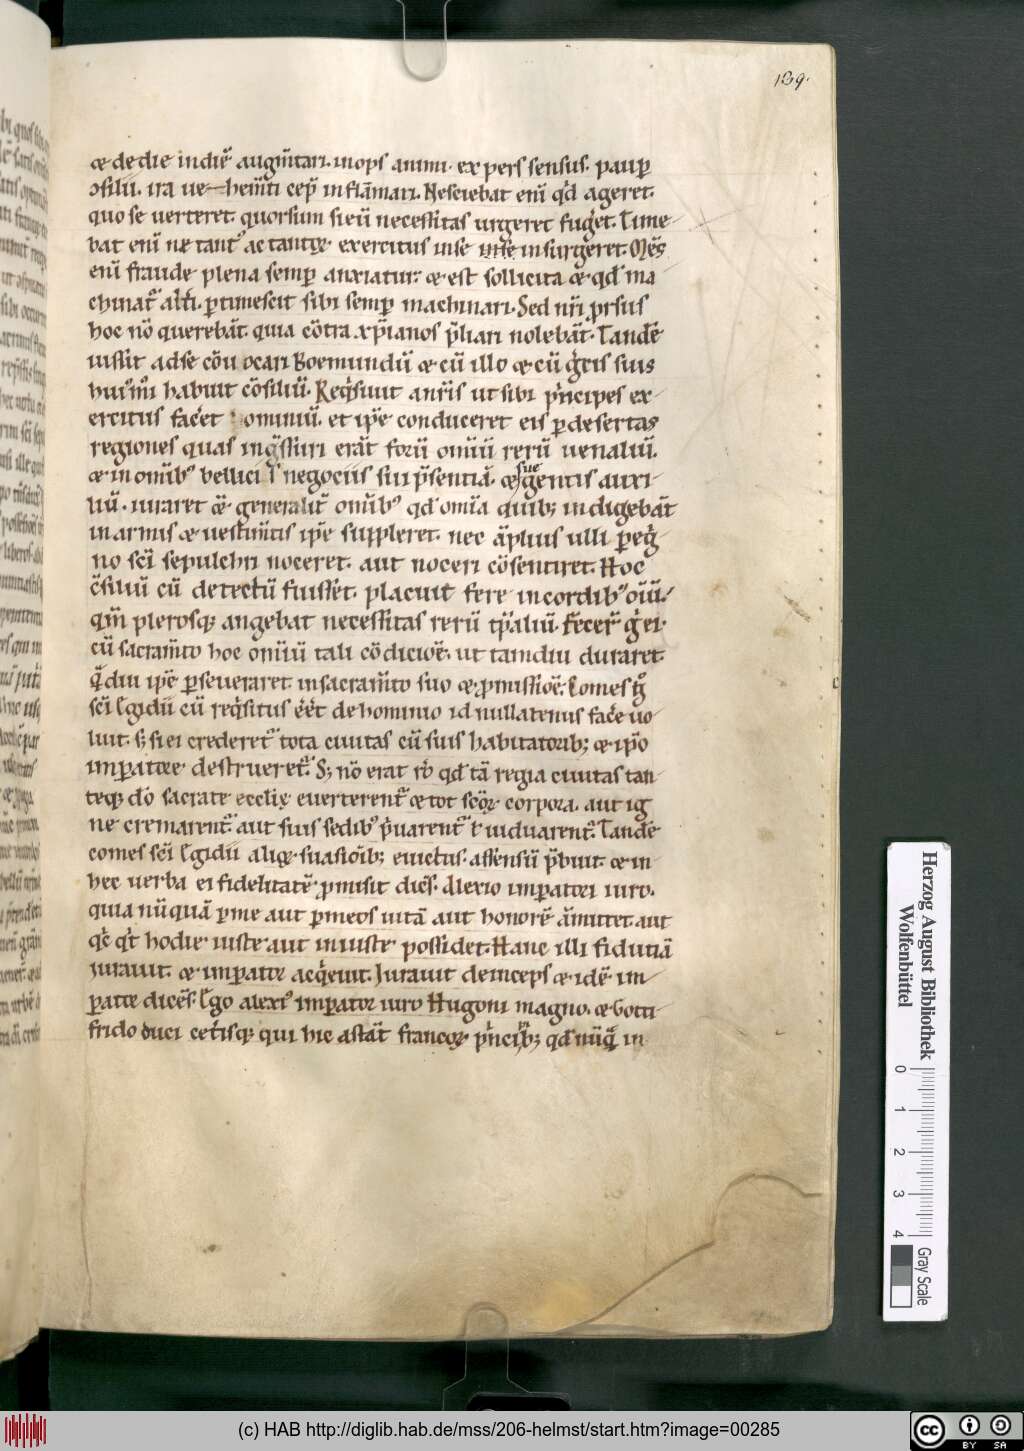 139.
æ de die in diē augm̄tari. inops animi. expers sensus. paup̱
ↄsilii. ira uehem̄ti cep̄ inflāmari. Nesciebat enī qd̄ ageret.
quo se uerteret. quorsum si eū necessitas urgeret fug̛et. Time
bat enī ne tant᷒ ac tantꝰ exercitus in se insurgeret. Mēs
enī fraude plena semꝑ anxiatur. æ est sollicita æ qd̄ ma
chinat᷒ alt̛i. ꝑtimescit sibi semꝑ machinari. Sed nr̄i ꝓrsus
hoc nō querebāt. quia cōtra xp̄ianos p̄liari nolebāt. Tandē
iussit ad se cōuocari Boemundū æ cū illo æ cū g̛cis suis
hui᷒m̊i habuit cōsiliū. Reqͥsiuit a nr̄is ut sibi pͥncipes ex
ercitus facerēt ominiū. et ip̄e conduceret eis ꝑ desertas
regiones quas ing̃ssuri erāt forū om̄iū rerū uenaliū.
æ in omīb᷒ bellici negociis sui p̄sentiā. æ suę gentis auxi
liū. iuraret ǣ generalit̄ omīb᷒ qd̄ om̄ia quib; indigebāt
in armis æ uestim̄tis ip̄e suppleret. nec āplius ulli ꝑegͥ
no sc̄i sepulchri noceret. aut noceri cōsentiret. Hoc
c̄siliū cū detectū fuisset. placuit fere in cordib᷒ oīū.
qm̄ plerosq; angebat necessitas rerū tp̄aliū. Fecer̄ g̊ ei.
cū sacram̄to hoc om̄iū tali cōdicioē. ut tamdiu duraret.
qͣdiu ip̄e ꝑseueraret in sacram̄to suo æ ꝓmissiōe. Comes g̊
sc̄i Egidii cū reqͥsitus eēt de hominio id nullatenus facere uo
luit. s; si ei crederet᷒ tota ciuitas cū suis habitatorib; æ ip̄o
imꝑatore destrueret᷒. S; nō erat rō qd̄ tā regia ciuitas tan
teq; dō sacrate ecclię euerterent᷒ æ tot scōꝝ corpora. aut ig
ne cremarent᷒. aut suis sedib᷒ pͥuarent᷒ ł uiduarent᷒. Tandē
comes sc̄i Egidii aliqͦꝝ suasiōib; euictus. assensū p̄buit. æ in
hec uerba ei fidelitatē ꝓmisit dicēs. Alexio imꝑatori iuro.
quia nūquā ꝑ me aut ꝑ meos uitā aut honorē āmittet. aut
qͥcqͥd hodie iuste aut iniuste possidet. Hanc illi fiduciā
iurauit. æ imꝑator acqͥeuit. Iurauit deinceps æ idē im
ꝑator dicēs. Ego alexi᷒ imꝑator iuro Hugoni magno. æ Gotti
frido duci cet̄isq; qui hic astāt francoꝝ pͥncipib; qd̄ nūqͣ in
Herzog August Bibliothek
Wolfenbüttel
0
1
2
3
4
Gray Scale
(c) HAB http://diglib.hab.de/mss/206-helmst/start.htm?image=00285
cc
BY SA